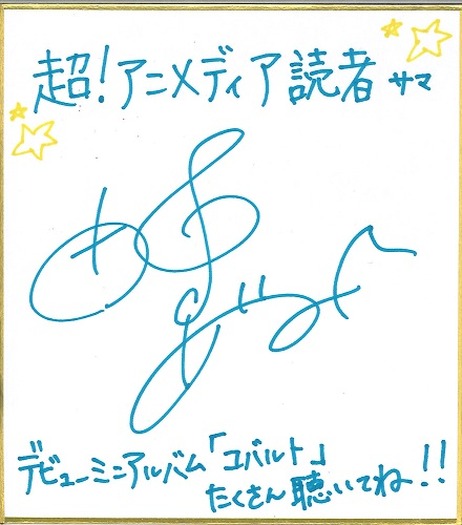 超!アニメディア読者サマ
デビューミニアルバム「コバルト」
たくさん聴いてね!!